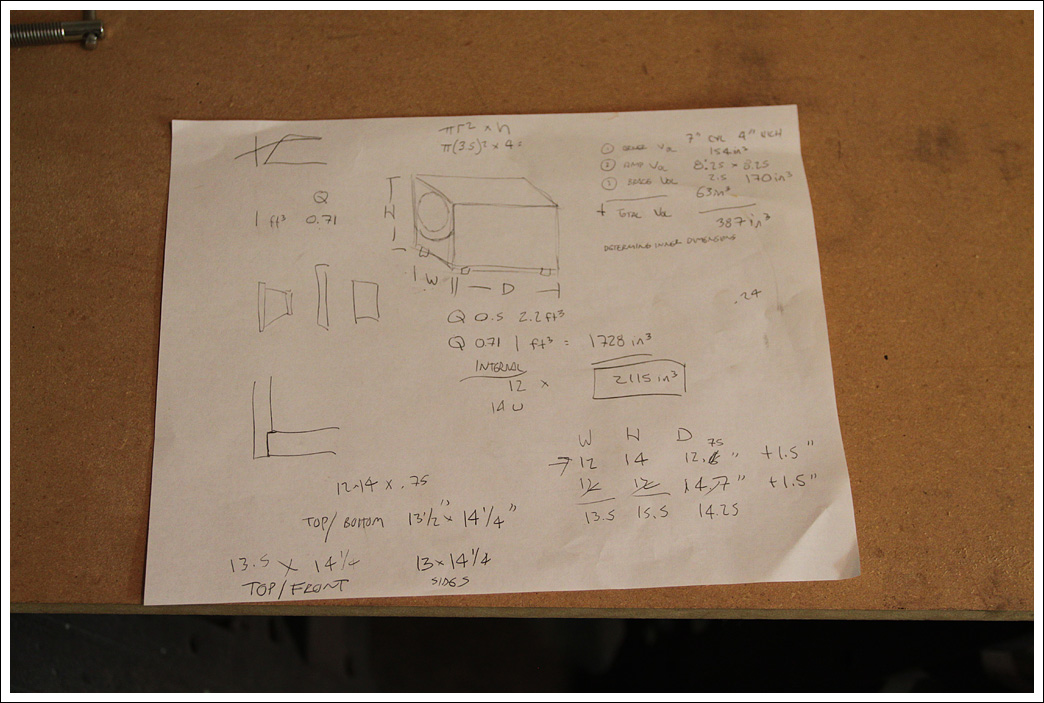 πr² x h
π(3.5)² x 4
7" CYL 4"
① Vol 154 in³
② AMP Vol 8.25 x 8.25
2.5 170 in³
③ Vol 63 in³
+ TOTAL Vol 387 in³
DETERMINING INNER DIMENSIONS
Q
1 ft³ 0.71
H
W
D
.24
Q 0.5 2.2 ft³
Q 0.71 1 ft³ = 1728 in³
INTERNAL
12 x
2115 in³
14
W H D
→ 12 14 12.75" +1.5"
12 12 14.7" +1.5"
13.5 15.5 14.25
12 x 14 x .75
TOP/BOTTOM 13 1/2" x 14 1/4"
13.5 x 14 1/4
TOP/FRONT
13 x 14 1/4
SIDES